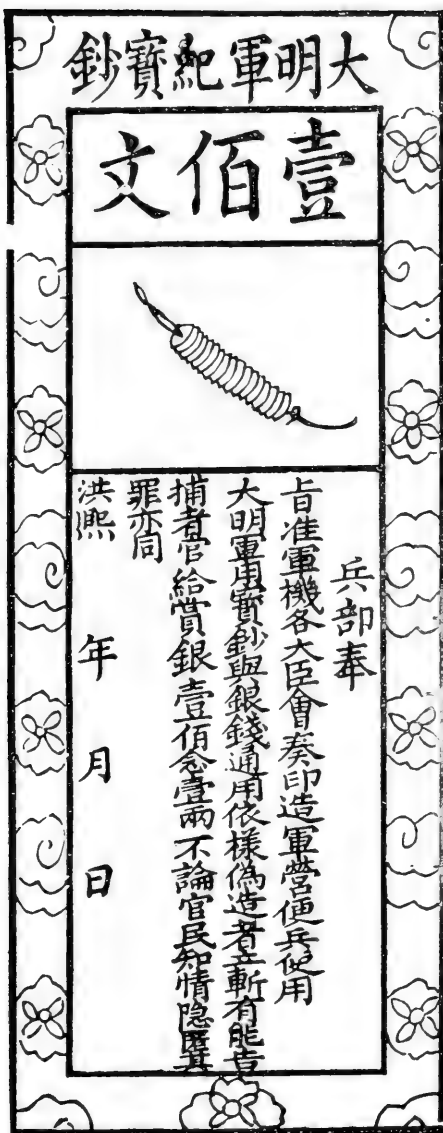 大明軍䊷寳鈔
壹佰文
兵部奉
旨准軍機各大臣會奏印造軍營便兵使用
大明軍用寳鈔與銀錢通用依様偽造者立斬有能告
捕者官給賞銀壹佰念壹兩不論官民知情隐匿其
罪亦同
洪熙　年　月　日